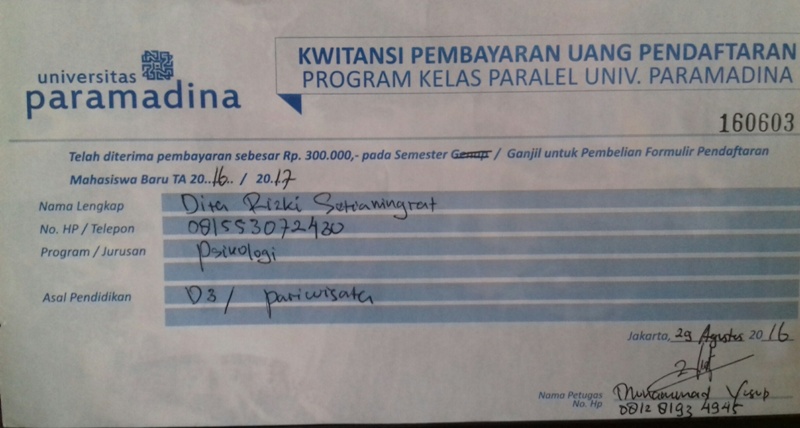 universitas
paramadina
KWITANSI PEMBAYARAN UANG PENDAFTARAN
PROGRAM KELAS PARALEL UNIV. PARAMADINA
160603
Telah diterima pembayaran sebesar Rp. 300.000,- pada Semester Genap / Ganjil untuk Pembelian Formulir Pendaftaran
Mahasiswa Baru TA 20..16.. / 20.17
Nama Lengkap Dita Rizki Setianingrat
No. HP / Telepon 081553072430
Program / Jurusan Psikologi
Asal Pendidikan D3 / pariwisata
Jakarta, 29 Agustus 20 16
Nama Petugas Muhammad Yusup
No. Hp 0812 8193 4945